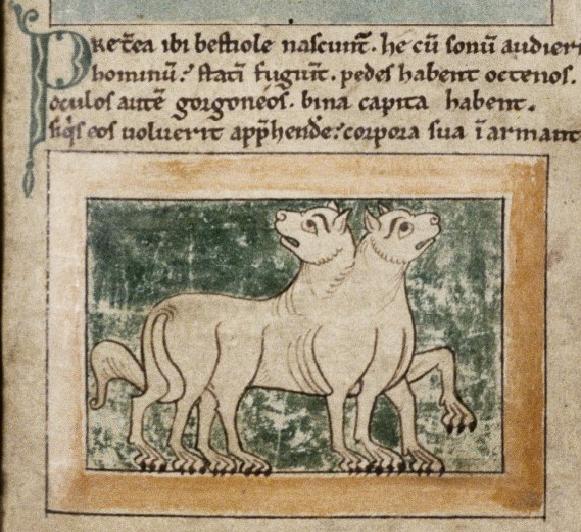 Pret̄ea ibi bestiole nascunt᷑. he cū sonū audieri
hominū? statī fugiūt. pedes habent octenos.
oculos autē gorgoneos. bina capita habent.
siq̇s eos uoluerit app̄hende? corpora sua īarmant